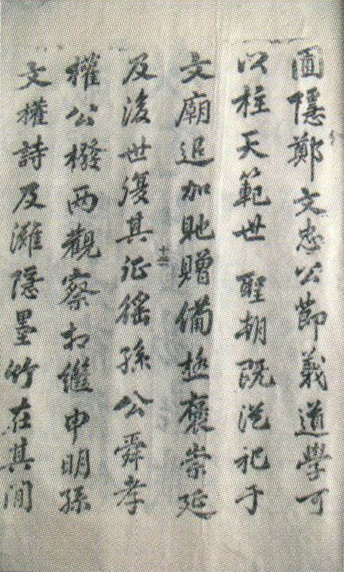 圃隱鄭文忠公節義道學可
以柱天範世 聖朝既從祀于
文廟追加貤贈備極褒崇延
及後世復其征徭孫公舜孝
權公橃兩觀察相繼申明孫
文權詩及灘隱墨竹在其間